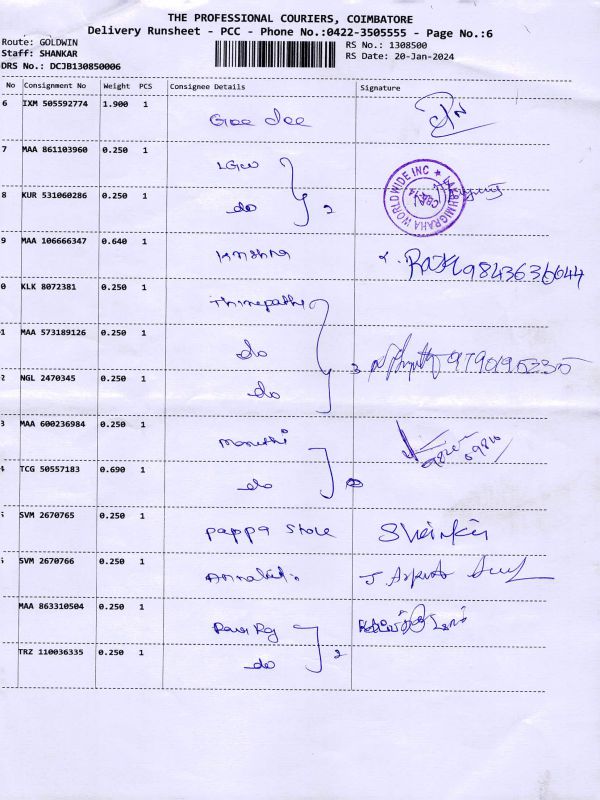 THE PROFESSIONAL COURIERS, COIMBATORE
Delivery Runsheet - PCC - Phone No.:0422-3505555 - Page No.:6
Route: GOLDWIN
RS No.: 1308500
Staff: SHANKAR
RS Date: 20-Jan-2024
DRS No.: DCJB130850006
No Consignment No Weight PCS Consignee Details Signature
6 IXM 505592774 1.900 1 Gee dee
7 MAA 861103960 0.250 1 LGW
8 KUR 531060286 0.250 1 do 2
WORLDWIDE INC
9 MAA 106666347 0.640 1 Krishna 9843636644
0 KLK 8072381 0.250 1 Thirupathi
1 MAA 573189126 0.250 1 do 3 9790195335
2 NGL 2470345 0.250 1 do
3 MAA 600236984 0.250 1 Maruthi
4 TCG 50557183 0.690 1 do 2
SVM 2670765 0.250 1 pappa Store
SVM 2670766 0.250 1
MAA 863310504 0.250 1 Ravi Raj
TRZ 110036335 0.250 1 do 2